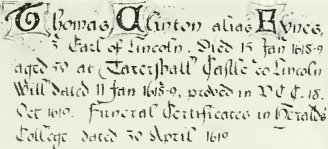 Thomas Clinton alias Fynes,
3 Earl of Lincoln. Died 15 Jan 1618-9
aged 50 at Tatershall Castle co Lincoln
Will dated 11 Jan 1618-9, proved in P C C. 18.
Oct 1619. Funeral Certificates in Heralds
College dated 30 April 1619